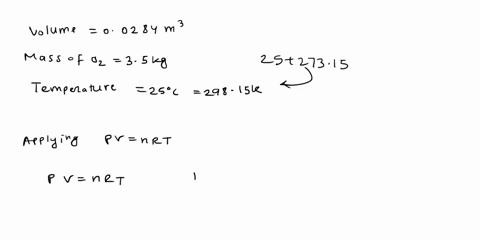 Volume = 0.0284 m³
Mass of O₂ = 3.5 kg
25+273.15
Temperature = 25°C = 298.15k
Applying PV = nRT
PV = nRT